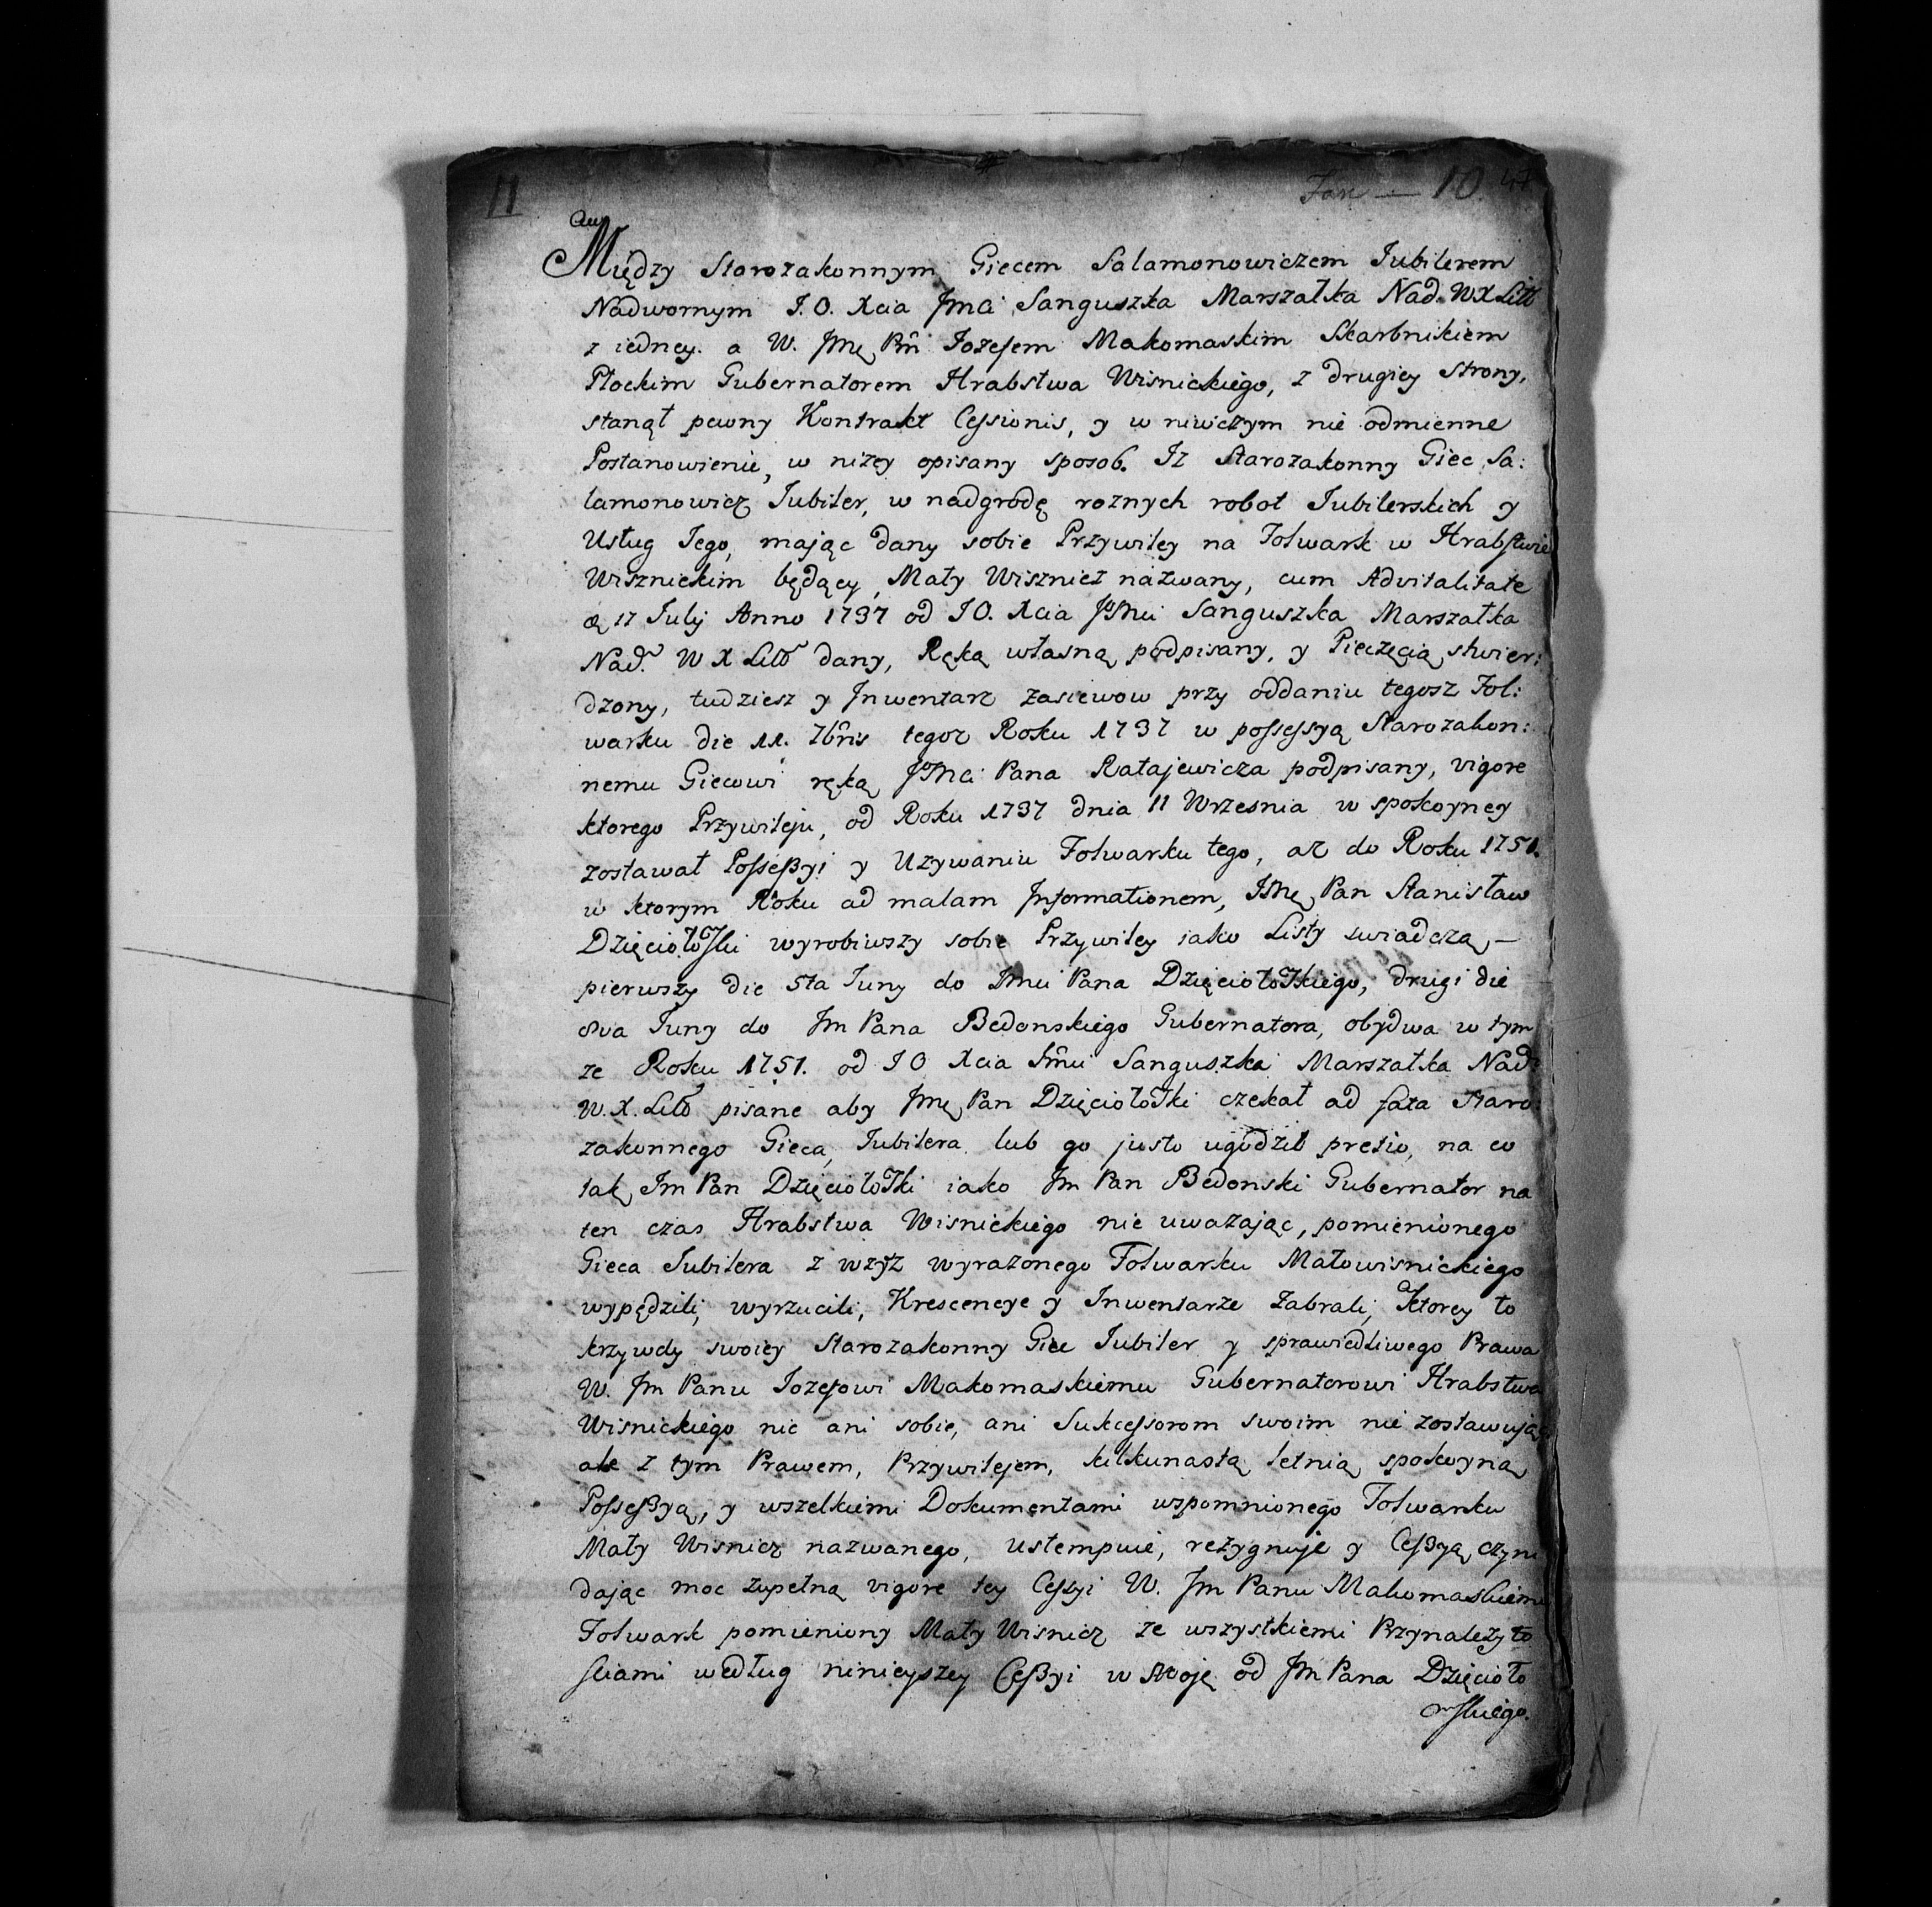 11
Fan — 10. 47
Między Starozakonnym Giecem Salamonowiczem Jubilerem
Nadwornym J.O. Xcia Jmci Sanguszka Marszałka Nad. W X Litt
z iedney. a W. Jmę Pn̄ Iozefem Makomaskim Skarbnikiem
Płockim Gubernatorem Hrabstwa Wisnickiego, z drugiey strony,
stanął pewny Kontrakt Cessionis, y w niwczym nie odmienne
Postanowienie, w nizey opisany sposob. Iz Starozakonny Giec Sa:
lamonowicz Jubiler, w nadgrodę roznych robot Jubilerskich y
Usług Jego, mając dany sobie Przywiley na Folwark w Hrabstwie
Wisznickim będący, Mały Wisznicz nazwany, cum Advitalitate
17 July Anno 1737 od JO. Xcia Jmci Sanguszka Marszałka
Nad. W X Litt dany, Ręką własną podpisany, y Pieczęcią stwier:
dzony, tudziesz y Jnwentarz zasiewow przy oddaniu tegosz Fol:
warku die 11. 7bris tegoz Roku 1737 w possessyą Starozakon:
nemu Giecowi ręką Jmci Pana Ratajewicza podpisany, vigore
ktorego Przywileju, od Roku 1737 dnia 11 Wrzesnia w spokoyney
zostawał Possessyi y Uzywaniu Folwarku tego, az do Roku 1751.
w ktorym Roku ad malam Jnformationem, Jmę Pan Stanisław
Dzięciołoski wyrobiwszy sobie Przywiley iako Listy swiadczą, —
pierwszy die 5ta Juny do Jmci Pana Dzięciołoskiego, drugi die
8va Juny do Jm Pana Bedonskiego Gubernatora, obydwa w tym
ze Roku 1751. od J O Xcia Jmci Sanguszki Marszałka Nad:
W. X. Litt pisane aby Jmę Pan Dzięciołoski czekał ad fata Staro:
zakonnego Gieca, Jubilera lub go justo ugodził pretio, na co
tak Jm Pan Dzięciołoski iako Jm Pan Bedonski Gubernator na
ten czas Hrabstwa Wisnickiego nie uwazając, pomienionego
Gieca Jubilera z wzyz wyrazonego Folwarku Małowisnickiego
wypędzili, wyrzucili, Krescencye y Inwentarze zabrali, ktorey to
krzywdy swoiey Starozakonny Giec Jubiler y sprawiedliwego Prawa
W. Jm Panu Iozefowi Makomaskiemu Gubernatorowi Hrabstwa
Wisnickiego nic ani sobie, ani Sukcessorom swoim nie zostawując
ale z tym Prawem, Przywilejem, kilkunastą letnią spokoyną
Possessyą, y wszelkiemi Dokumentami wspomnionego Folwarku
Mały Wisnicz nazwanego, ustempuie, rezygnuje y Cessyą czyni
dając moc zupełną vigore tey Cessyi W. Jm Panu Makomaskiemu
Folwark pomieniony Mały Wisnicz ze wszystkiemi Przynalezyto
sciami według ninieyszey Cessyi w swoję od Jm Pana Dzięcioło
wskiego.